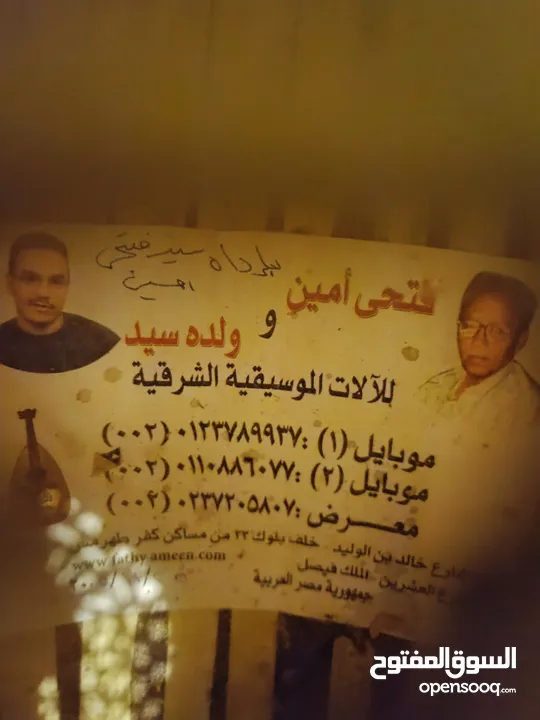 بإهداء سيد فتحى
امين
فتحى أمين
و
ولده سيد
للآلات الموسيقية الشرقية
موبايل (١) :٠١٢٣٧٨٩٩٣٧ (٠٠٢)
موبايل (٢) :٠١١٠٨٨٦٠٧٧ (٠٠٢)
معرض :٠٢٣٧٢٠٥٨٠٧ (٠٠٢)
شارع خالد بن الوليد خلف بلوك ٢٣ من مساكن كفر طهرمس
العشرين الملك فيصل
www.fathy-ameen.com
جمهورية مصر العربية
السوق المفتوح
opensooq.com